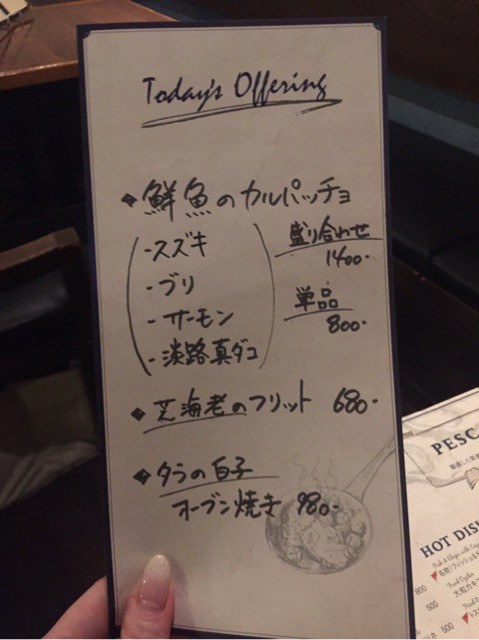 Today's Offering
◆鮮魚のカルパッチョ
-スズキ
-ブリ
-サーモン
-淡路真ダコ
盛り合わせ
1400-
単品
800-
◆芝海老のフリット 680-
◆タラの白子
オーブン焼き 980-
PESC
HOT DIS
800
500
500